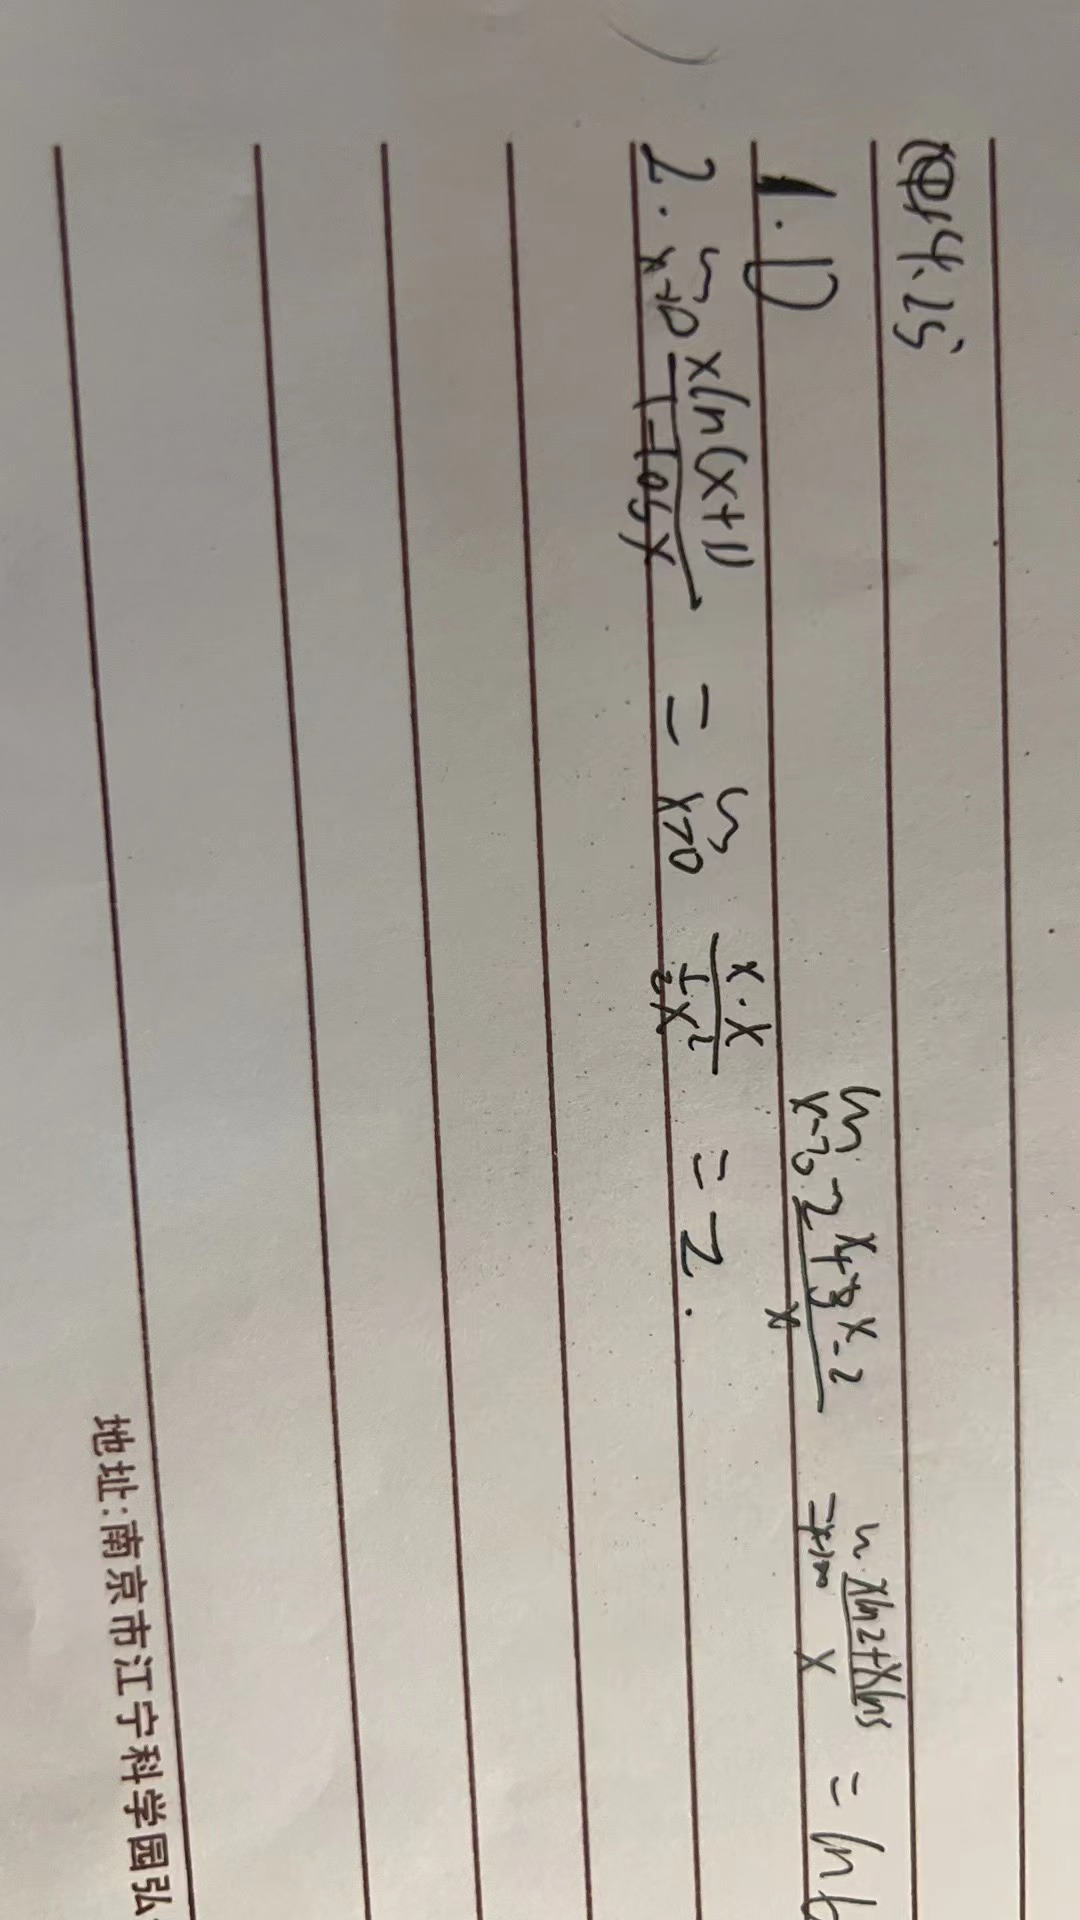 4.25
1. D lim x→0 (2^x+3^x-2)/x = lim x→0 (xln2+xln3)/x = ln6
2. lim x→0 xln(x+1)/(1-cosx) = lim x→0 x·x/(½x²) = 2.
地址:南京市江宁科学园弘